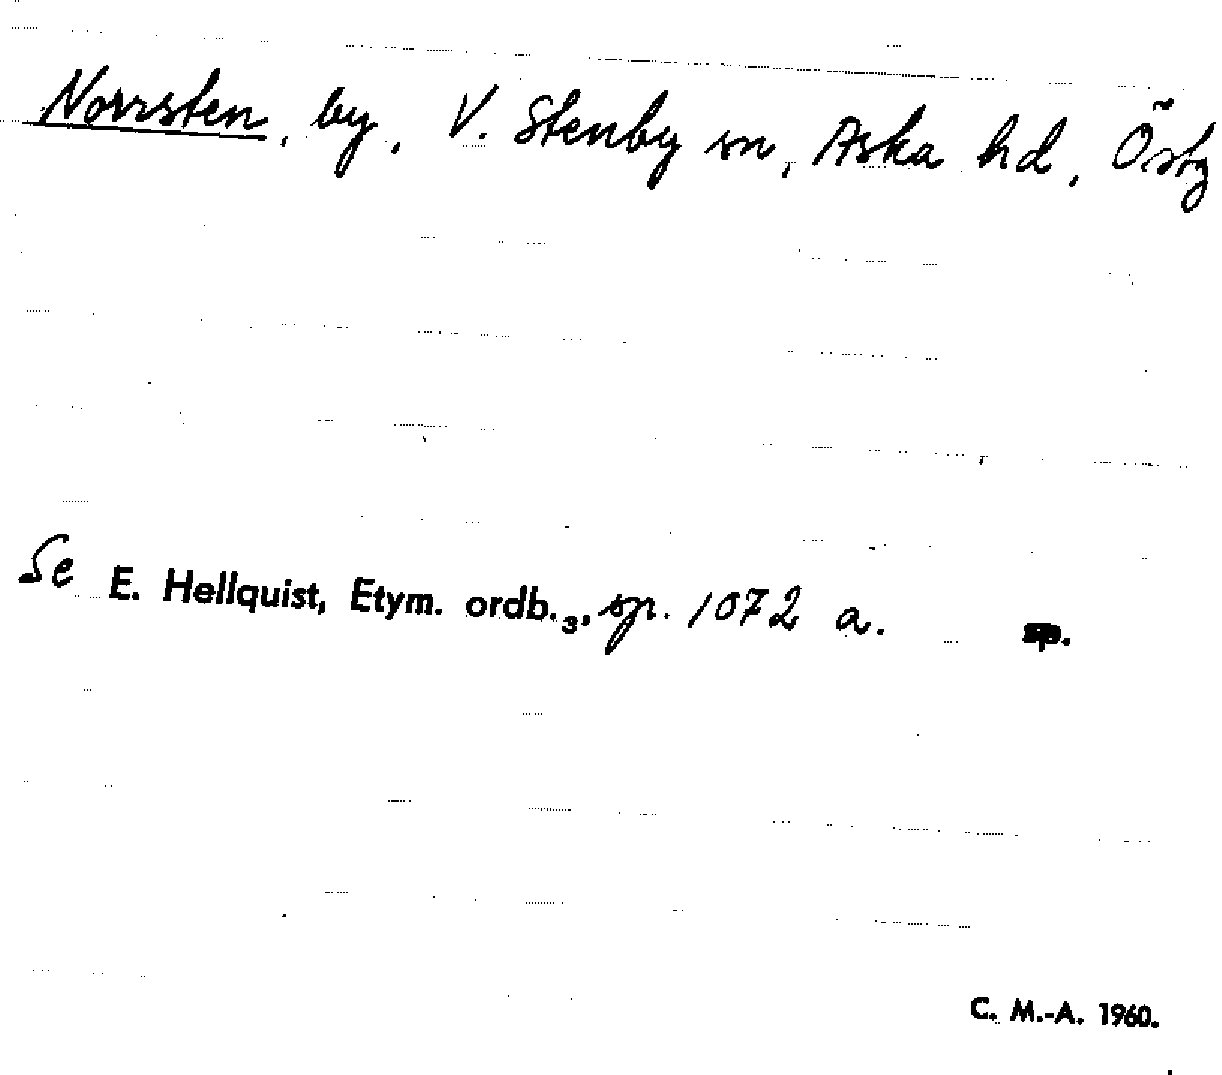 Norrsten, by, V. Stenby sn, Aska hd, Östg
Se E. Hellquist, Etym. ordb.₃, sp. 1072 a. sp.
C. M.-A. 1960.